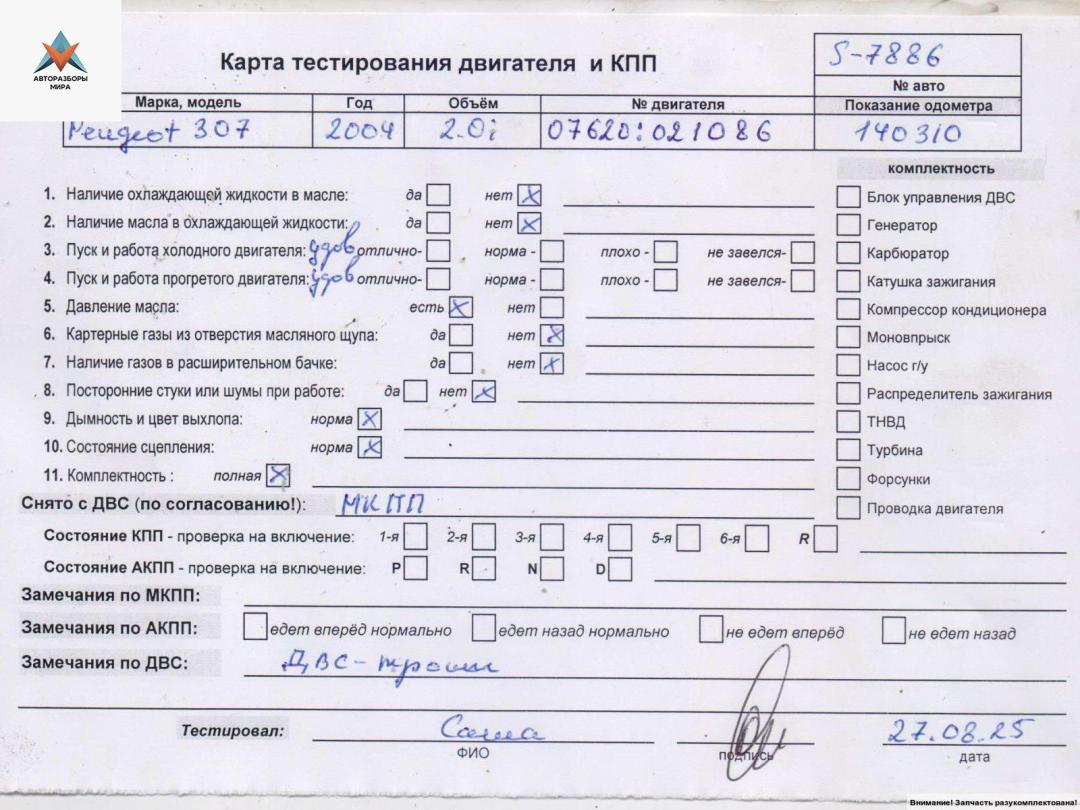 АВТОРАЗБОРЫ
МИРА
Карта тестирования двигателя и КПП
S-7886
№ авто
Марка, модель Год Объём № двигателя Показание одометра
Peugeot 307 2004 2.0i 07620:021086 140310
комплектность
1. Наличие охлаждающей жидкости в масле: да нет X
Блок управления ДВС
2. Наличие масла в охлаждающей жидкости: да нет X
Генератор
3. Пуск и работа холодного двигателя: удов отлично- норма - плохо - не завелся-
Карбюратор
4. Пуск и работа прогретого двигателя: удов отлично- норма - плохо - не завелся-
Катушка зажигания
5. Давление масла: есть X нет
Компрессор кондиционера
6. Картерные газы из отверстия масляного щупа: да нет X
Моновпрыск
7. Наличие газов в расширительном бачке: да нет X
Насос г/у
8. Посторонние стуки или шумы при работе: да нет X
Распределитель зажигания
9. Дымность и цвет выхлопа: норма X
ТНВД
10. Состояние сцепления: норма X
Турбина
11. Комплектность : полная X
Форсунки
Снято с ДВС (по согласованию!): МКПП
Проводка двигателя
Состояние КПП - проверка на включение: 1-я 2-я 3-я 4-я 5-я 6-я R
Состояние АКПП - проверка на включение: P R N D
Замечания по МКПП:
Замечания по АКПП: едет вперёд нормально едет назад нормально не едет вперёд не едет назад
Замечания по ДВС: ДВС - троит
Тестировал: Саша 27.08.25
ФИО подпись дата
Внимание! Запчасть разукомплектована!